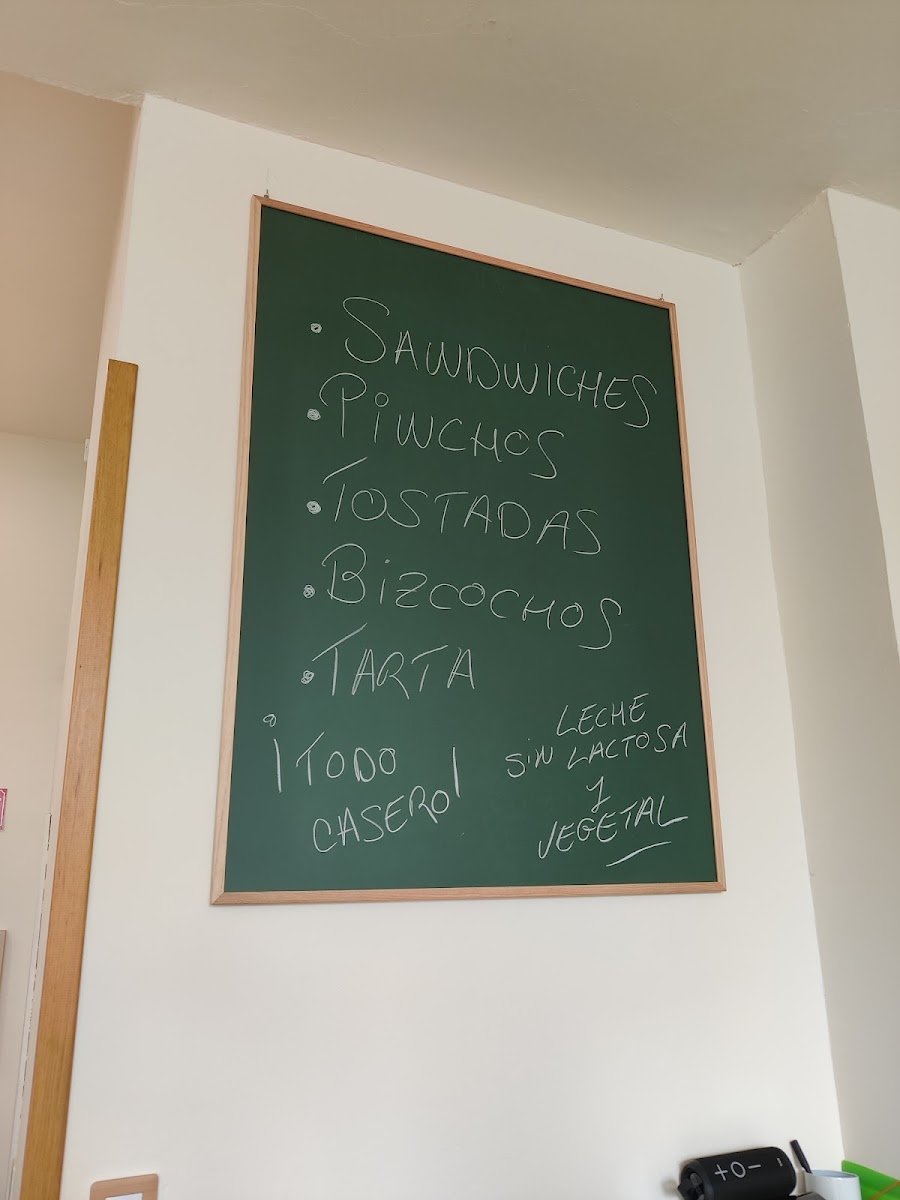 • SANDWICHES
• PINCHOS
• TOSTADAS
• BIZCOCHOS
• TARTA
¡TODO
CASERO!
LECHE
SIN LACTOSA
Y
VEGETAL